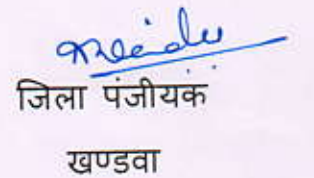 जिला पंजीयक
खण्डवा